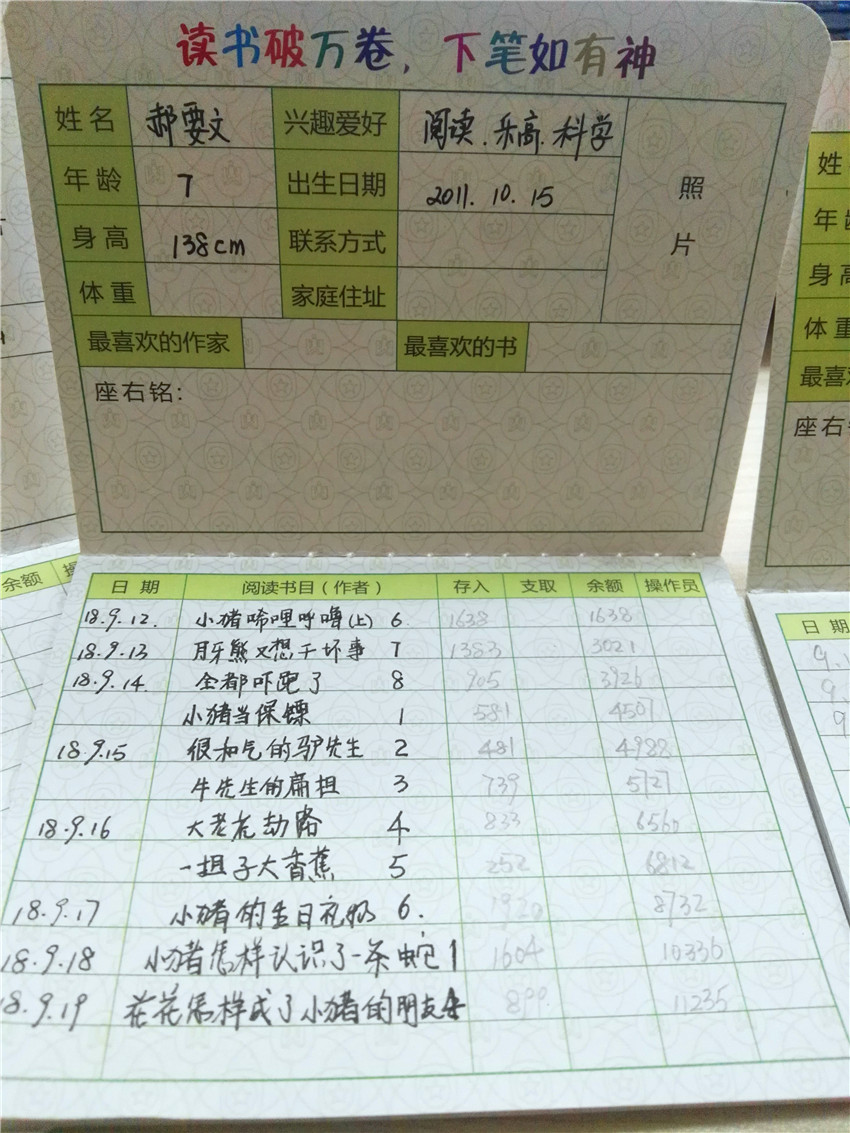 读书破万卷，下笔如有神
姓名 郝雯文 兴趣爱好 阅读.乐高.科学 照
年龄 7 出生日期 2011.10.15 片
身高 138cm 联系方式
体重 家庭住址
最喜欢的作家 最喜欢的书
座右铭：
日期 阅读书目（作者） 存入 支取 余额 操作员
18.9.12. 小猪唏哩呼噜(上) 6 1638 1638
18.9.13 月牙熊又想干坏事 7 1383 3021
18.9.14 全都吓跑了 8 905 3926
小猪当保镖 1 581 4507
18.9.15 很和气的驴先生 2 481 4988
牛先生的扁担 3 739 5727
18.9.16 大老虎劫路 4 833 6560
一担子大香蕉 5 252 6812
18.9.17 小猪的生日礼物 6. 1920 8732
18.9.18 小猪怎样认识了一条蛇 1 1604 10336
18.9.19 花花怎样成了小猪的朋友 899 11235
余额
姓
年龄
身高
体重
最喜
座右
日期